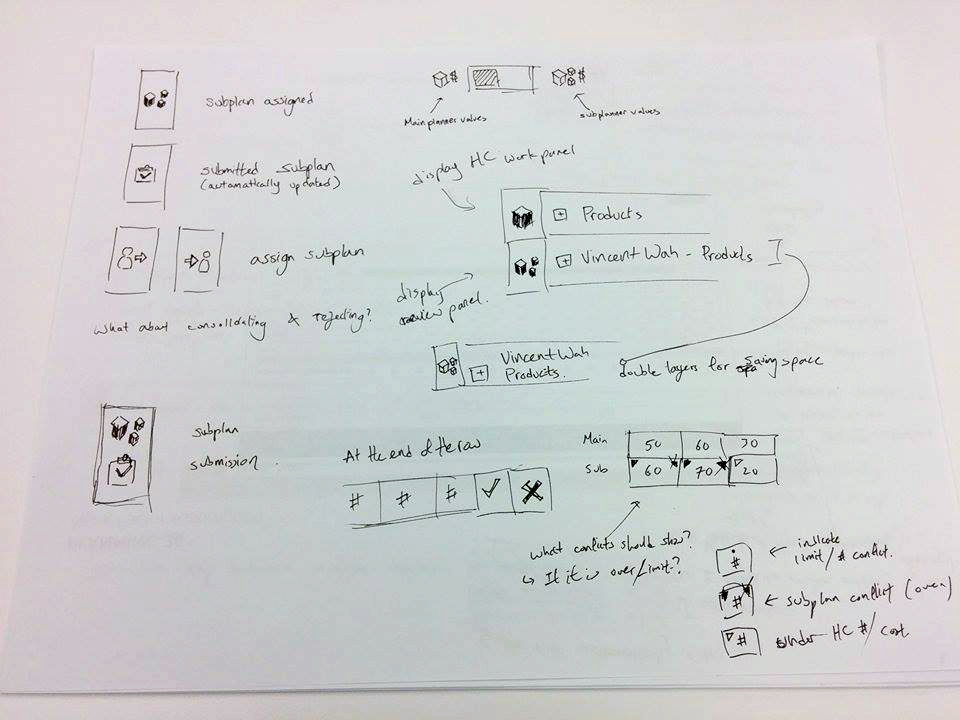 subplan assigned
#
#
Main planner values
subplanner values
submitted subplan
(automatically updated)
display HC work panel
+ Products
assign subplan
+ Vincent Wah - Products
display
review panel.
What about consolidating & rejecting?
+ Vincent Wah
Products.
double layers for saving space
subplan
submission
At the end of the row
# # #
Main 50 60 30
Sub 60 70 20
What conflicts should show?
If it is over/limit?
# indicate
limit/# conflict.
# subplan conflict (over)
# under HC #/ cost